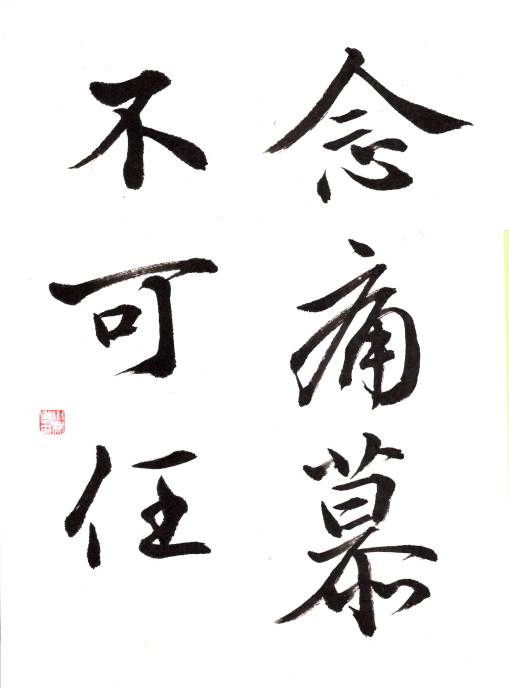 念痛慕
不可任